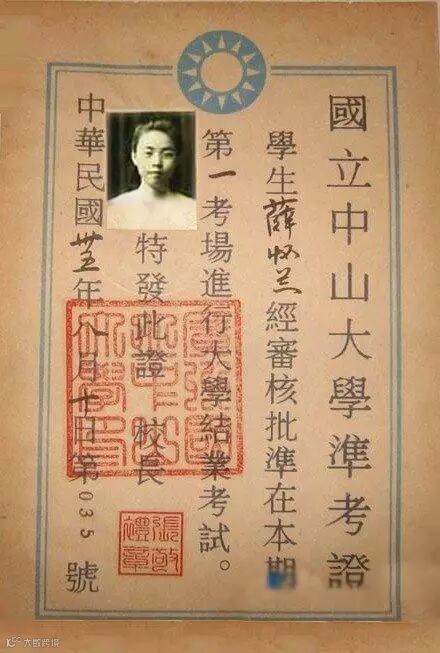 國立中山大學準考證
學生薛懷兰經審核批準在本期
第一考場進行大學結業考試。
特發此證 校長
中華民國卅五年八月十日第035號
大數跨境